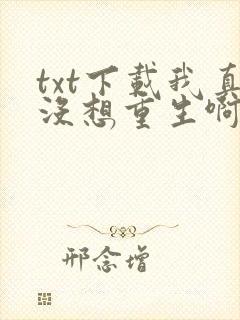 txt下载我真
没想重生啊
邢念增